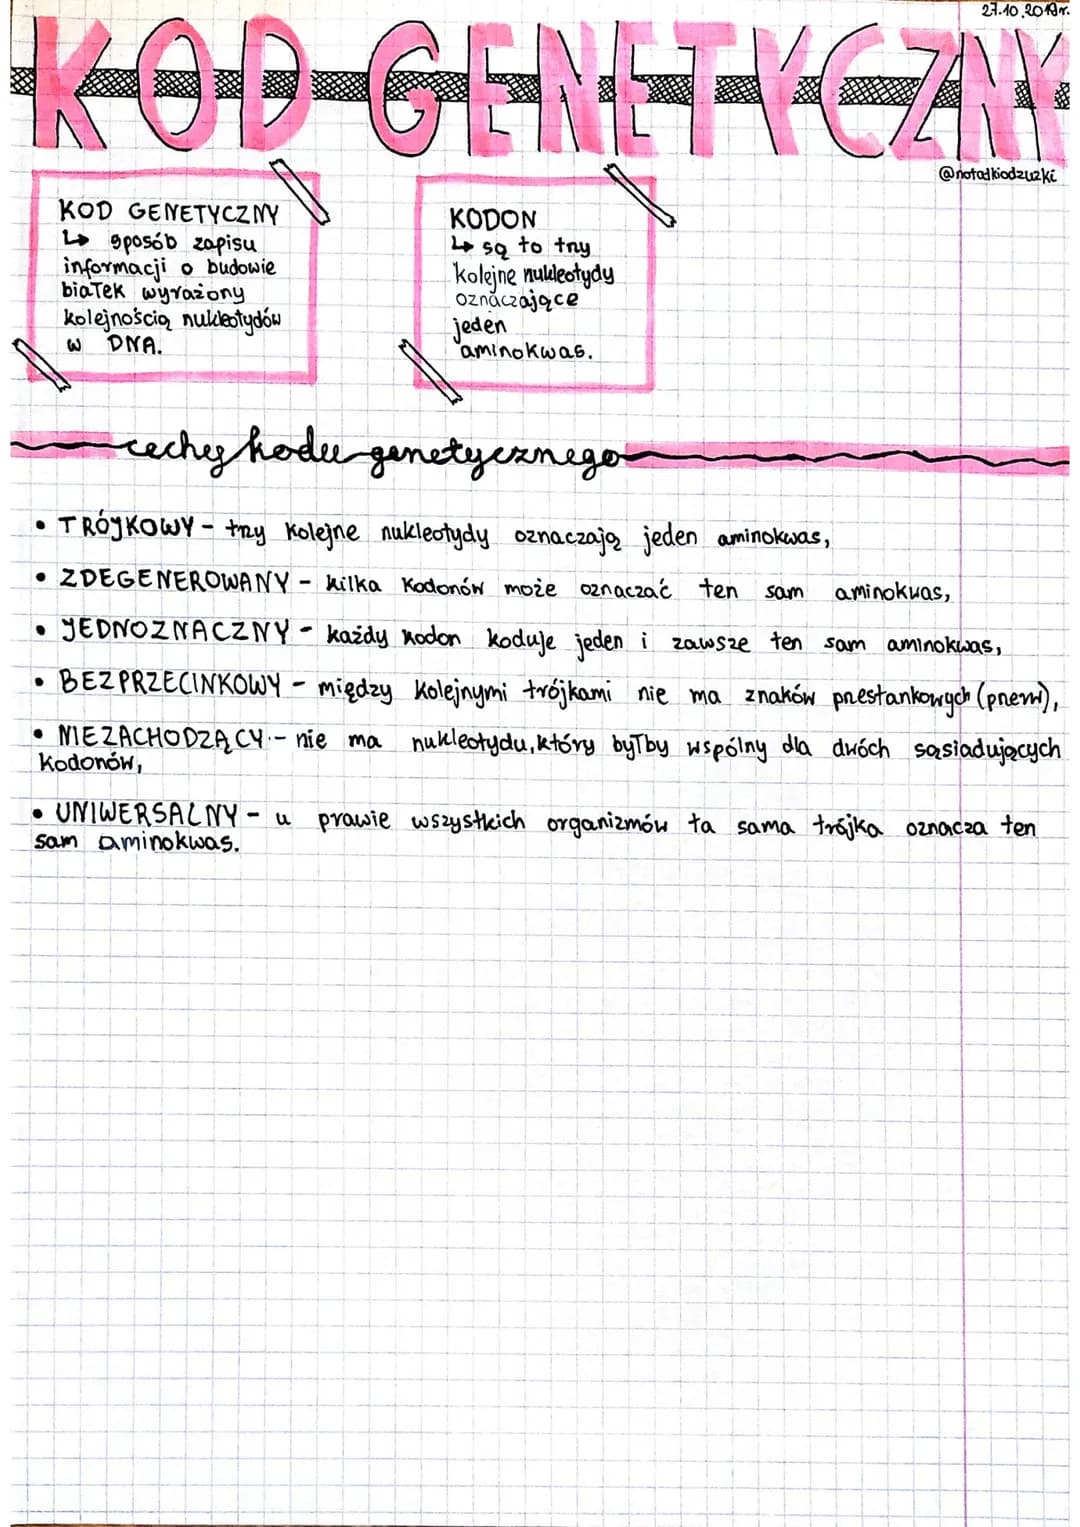 27.10.2019r.
KOD GENETYCZNY
@notadkiodzuzki
KOD GENETYCZNY
↳ sposób zapisu
informacji o budowie
białek wyrażony
kolejnością nukleotydów
w DNA.
KODON
↳ są to trzy
kolejne nukleotydy
oznaczające
jeden
aminokwas.
cechy kodu genetycznego
• TRÓJKOWY - trzy kolejne nukleotydy oznaczają jeden aminokwas,
• ZDEGENEROWANY - kilka kodonów może oznaczać ten sam aminokwas,
• JEDNOZNACZNY - każdy kodon koduje jeden i zawsze ten sam aminokwas,
• BEZPRZECINKOWY - między kolejnymi trójkami nie ma znaków przestankowych (przerw),
• NIEZACHODZĄCY - nie ma nukleotydu, który byłby wspólny dla dwóch sąsiadujących
kodonów,
• UNIWERSALNY - u prawie wszystkich organizmów ta sama trójka oznacza ten
sam aminokwas.